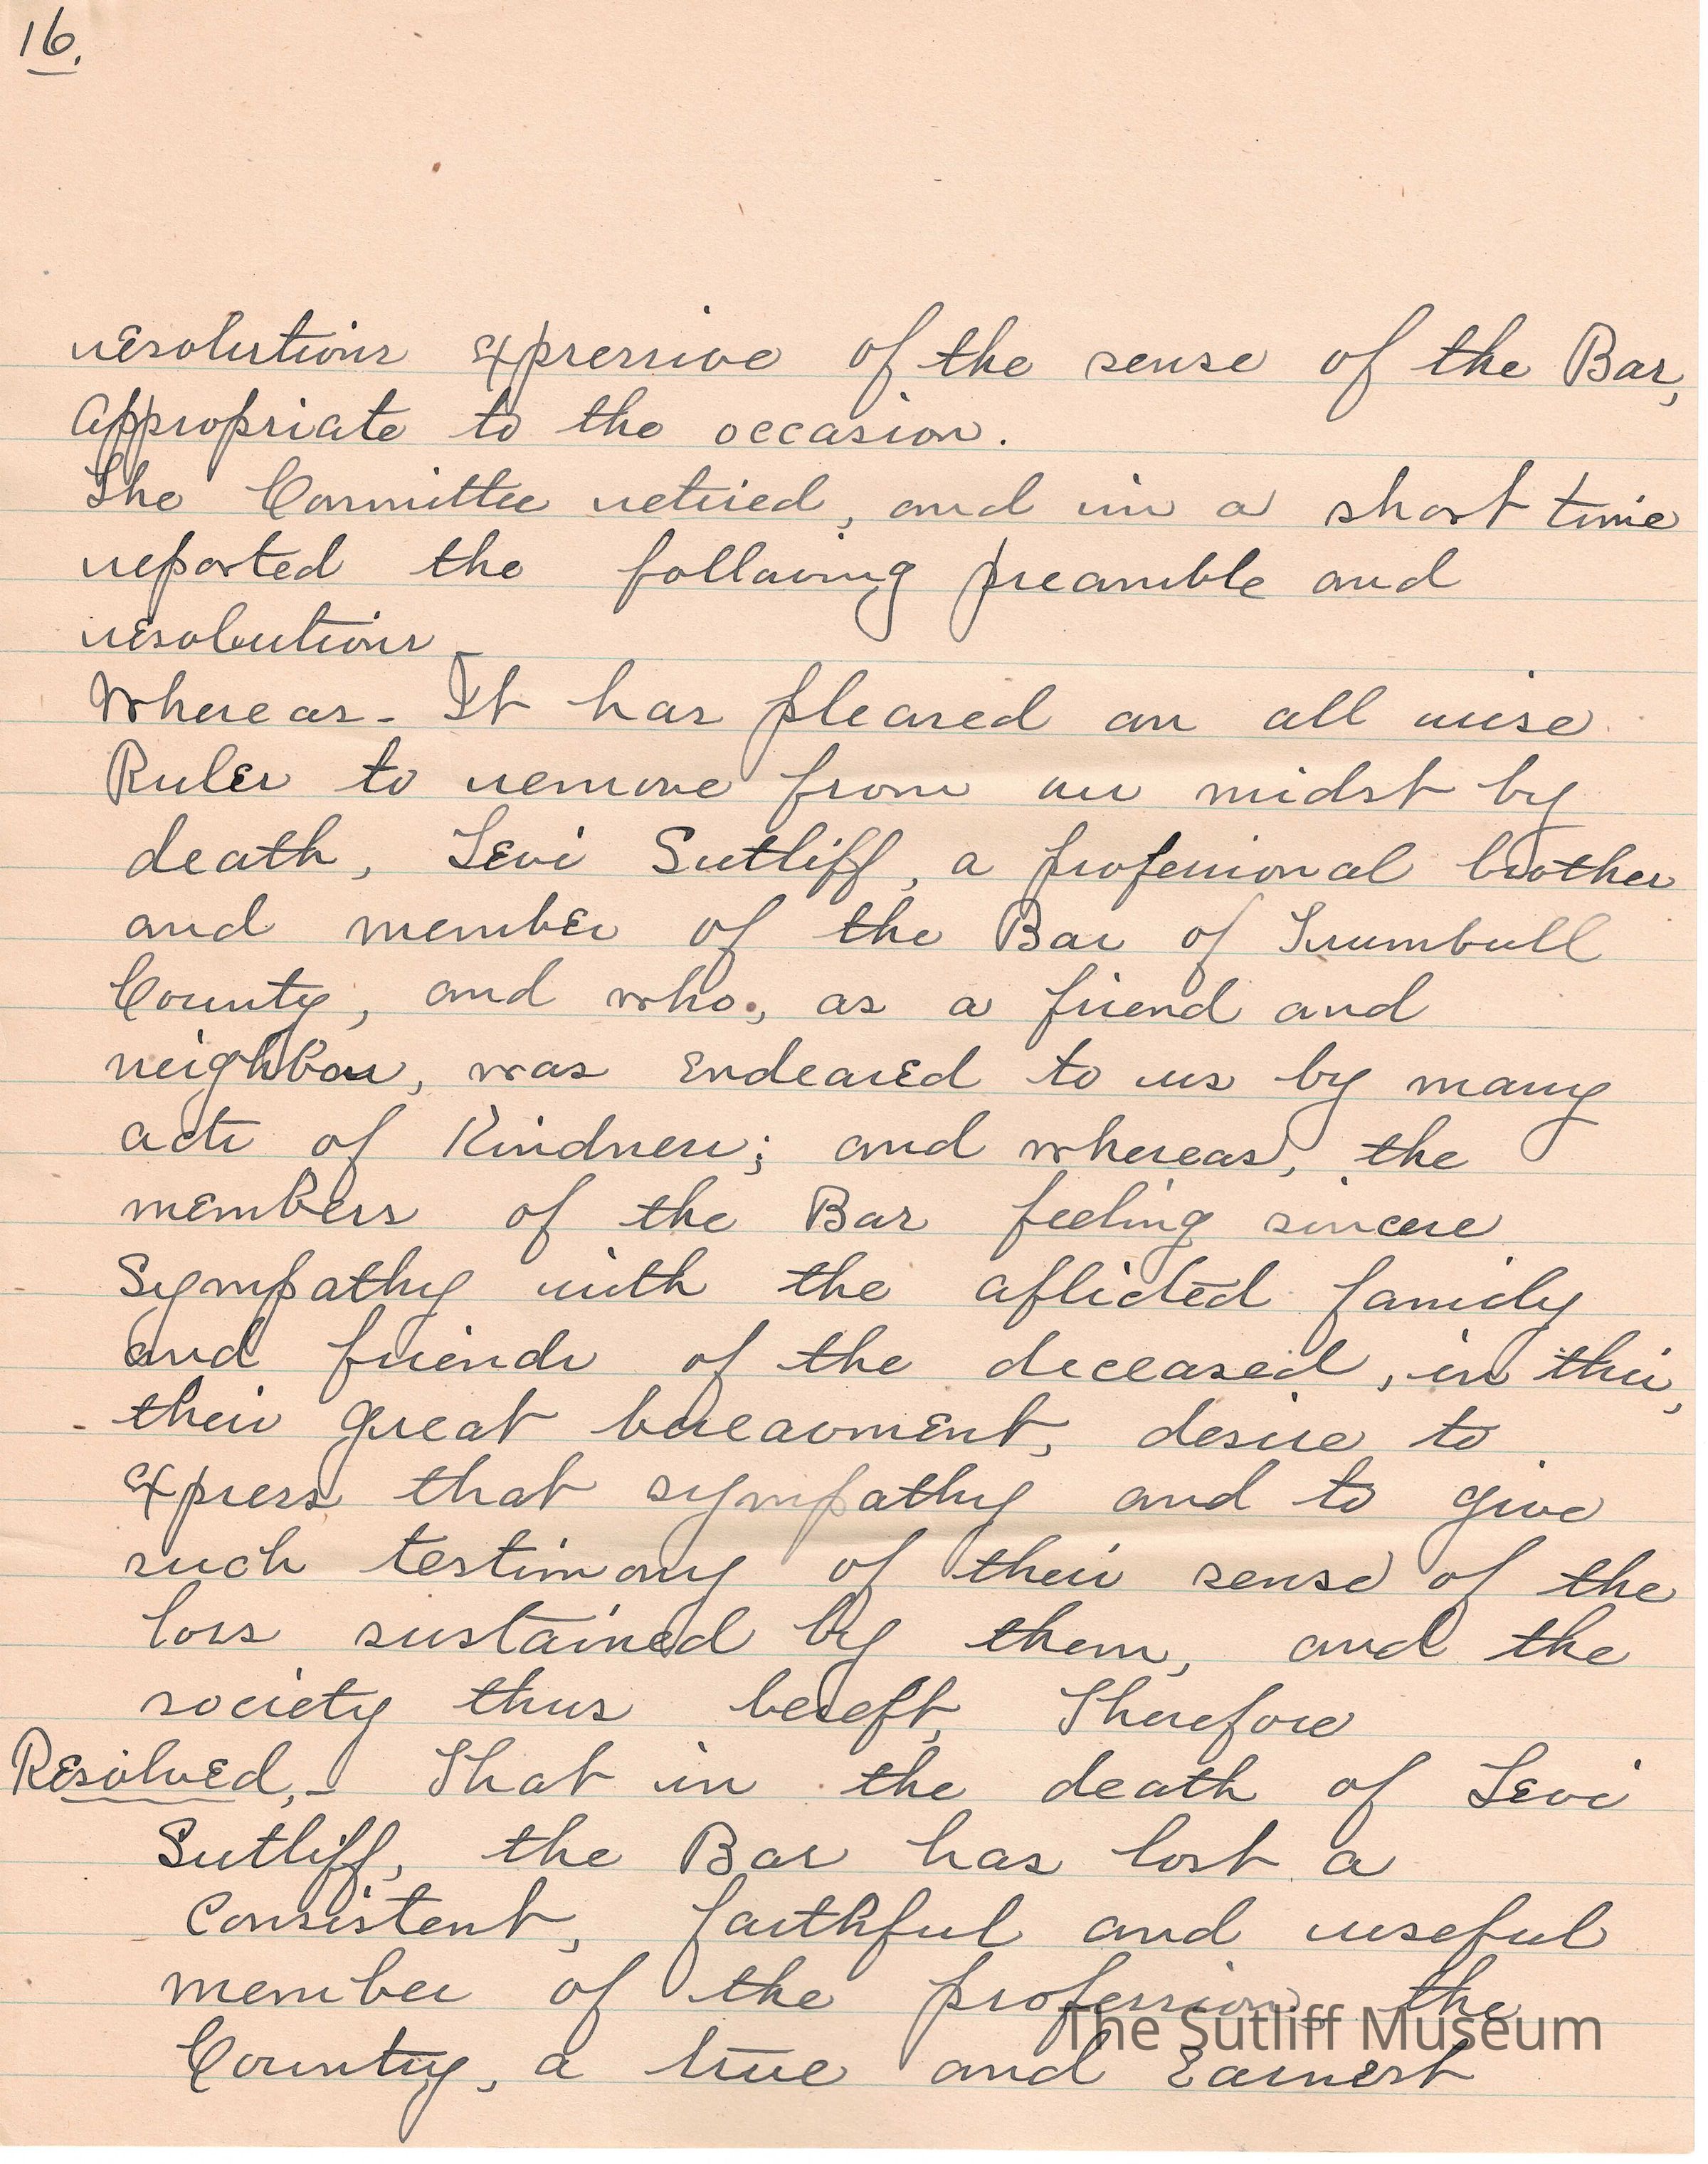 16.
resolutions expressive of the sense of the Bar,
appropriate to the occasion.
The Committee retired, and in a short time
reported the following preamble and
resolutions
Whereas - It has pleased an all wise
Ruler to remove from our midst by
death, Levi Sutliff, a professional brother
and member of the Bar of Trumbull
County, and who, as a friend and
neighbor, was endeared to us by many
acts of Kindness; and whereas, the
members of the Bar feeling sincere
Sympathy with the aflicted family
and friends of the deceased, in this,
their great bereavment, desire to
express that sympathy and to give
such testimony of their sense of the
loss sustained by them, and the
society thus bereft, Therefore
Resolved,- That in the death of Levi
Sutliff, the Bar has lost a
Consistent, faithful and useful
member of the profession, the
County, a true and Earnest
The Sutliff Museum